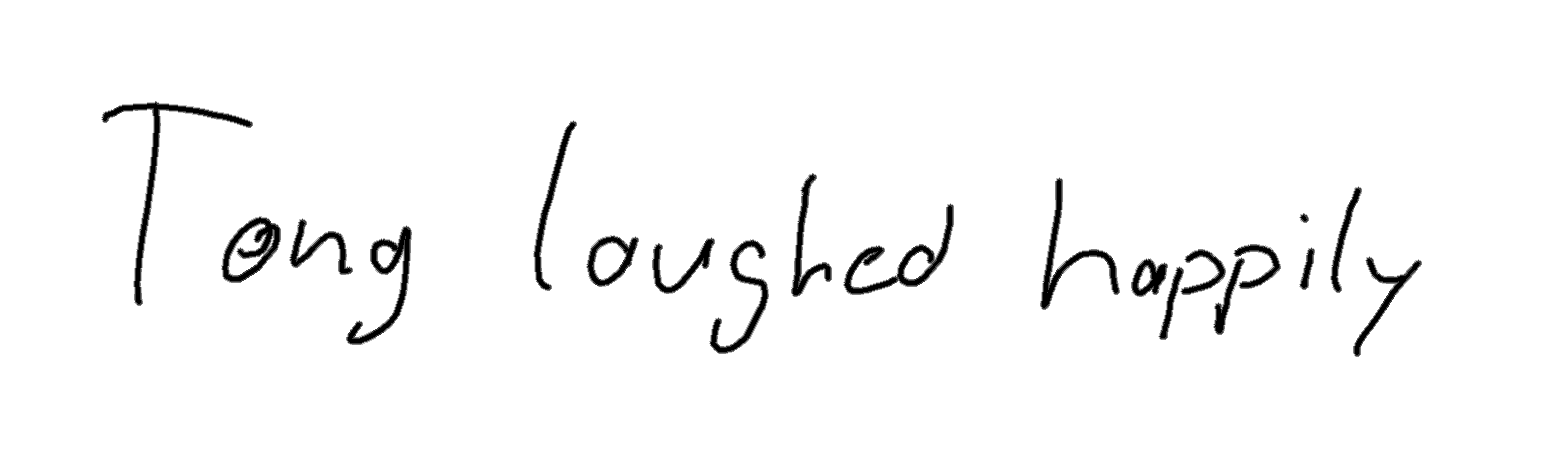 Tong laughed happily